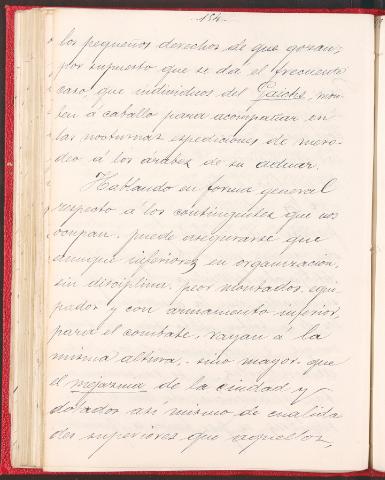 -154-
los pequeños derechos de que gozan;
por supuesto que se da el frecuente
caso que individuos del Gaiche, mon-
ten á caballo para acompañar en
las nocturnas espediciones de mero-
deo á los árabes de su aduar.
Hablando en forma general
respecto á los contingentes que nos
ocupan, puede asegurarse que
aunque inferiores en organización,
sin disciplina, peor montados, equi-
pados y con armamento inferior
para el combate, rayan á la
misma altura, sino mayor que
el mejaznia de la ciudad y
dotados así mismo de cualida
des superiores que aquellos,